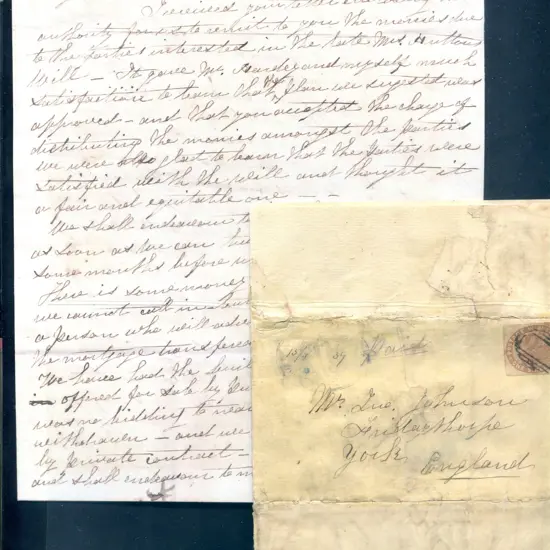 I received your letter
authority for us to remit to you the monies due
to the Parties interested in the late Mrs Huttons
Will — It gave Mr. and myself much
satisfaction to learn that the plan we sugested was
approved — and that you accepted the charge of
distributing the monies amongst the Parties
we were also glad to hear that the Parties were
satisfied with the will and thought it
a fair and equitable one —
We shall endeavour to
as soon as we can
some months before
There is some money
we cannot call in
a person who will
the mortgage
We have had the
offered for sale by
was no bidding to
withdrawn — and we
by private contract —
and shall endeavour to
Paid
Mr. Jno. Johnson
York
England